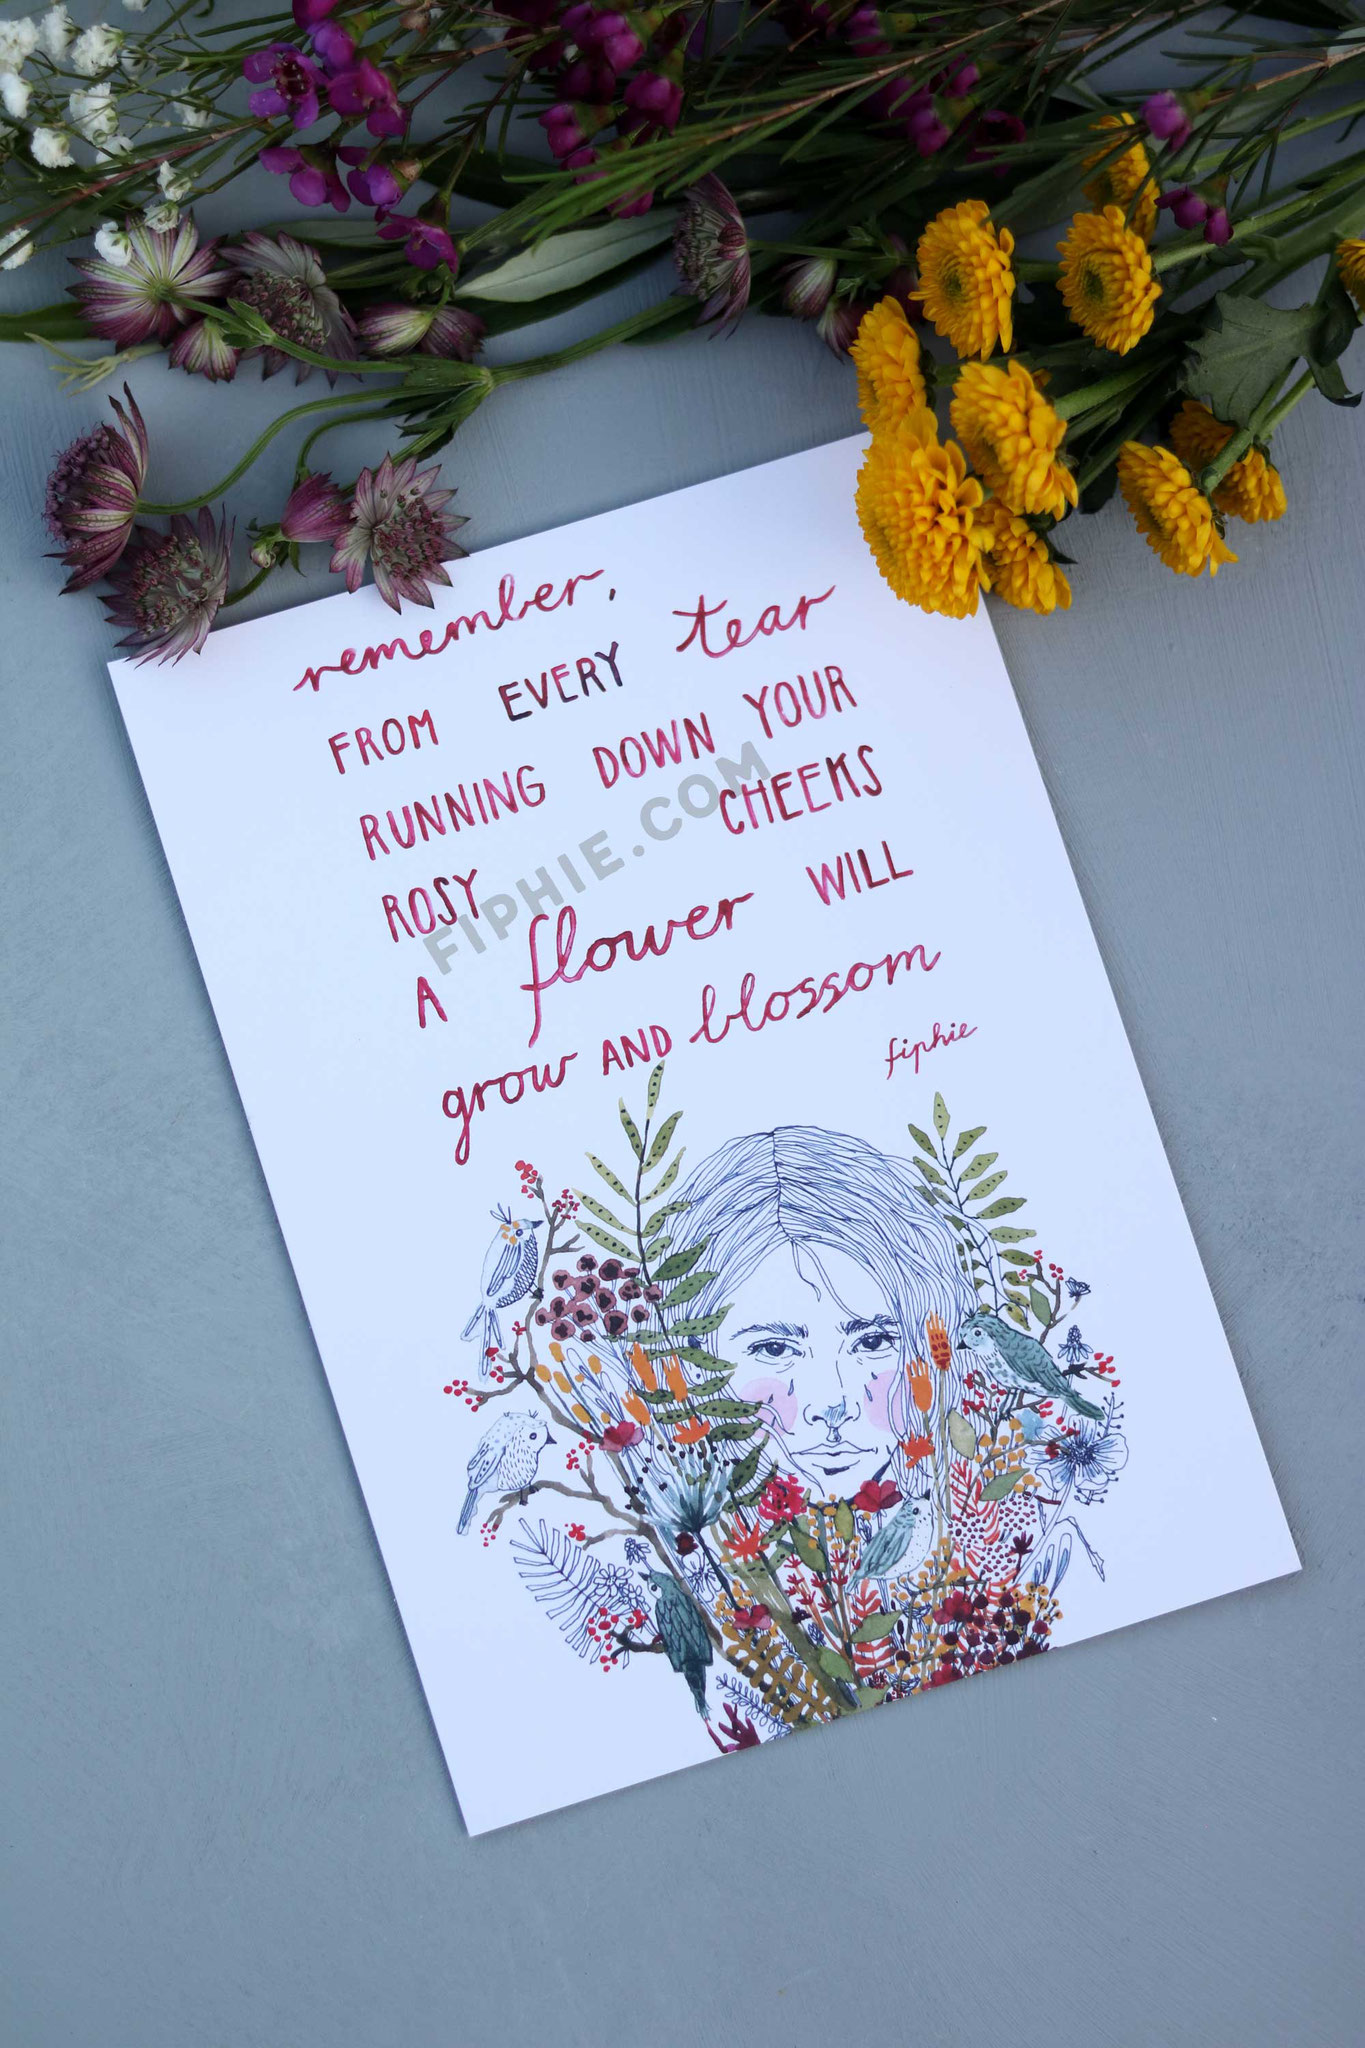 remember,
FROM EVERY tear
RUNNING DOWN YOUR
ROSY CHEEKS
A flower WILL
grow AND blossom
fiphie
FIPHIE.COM